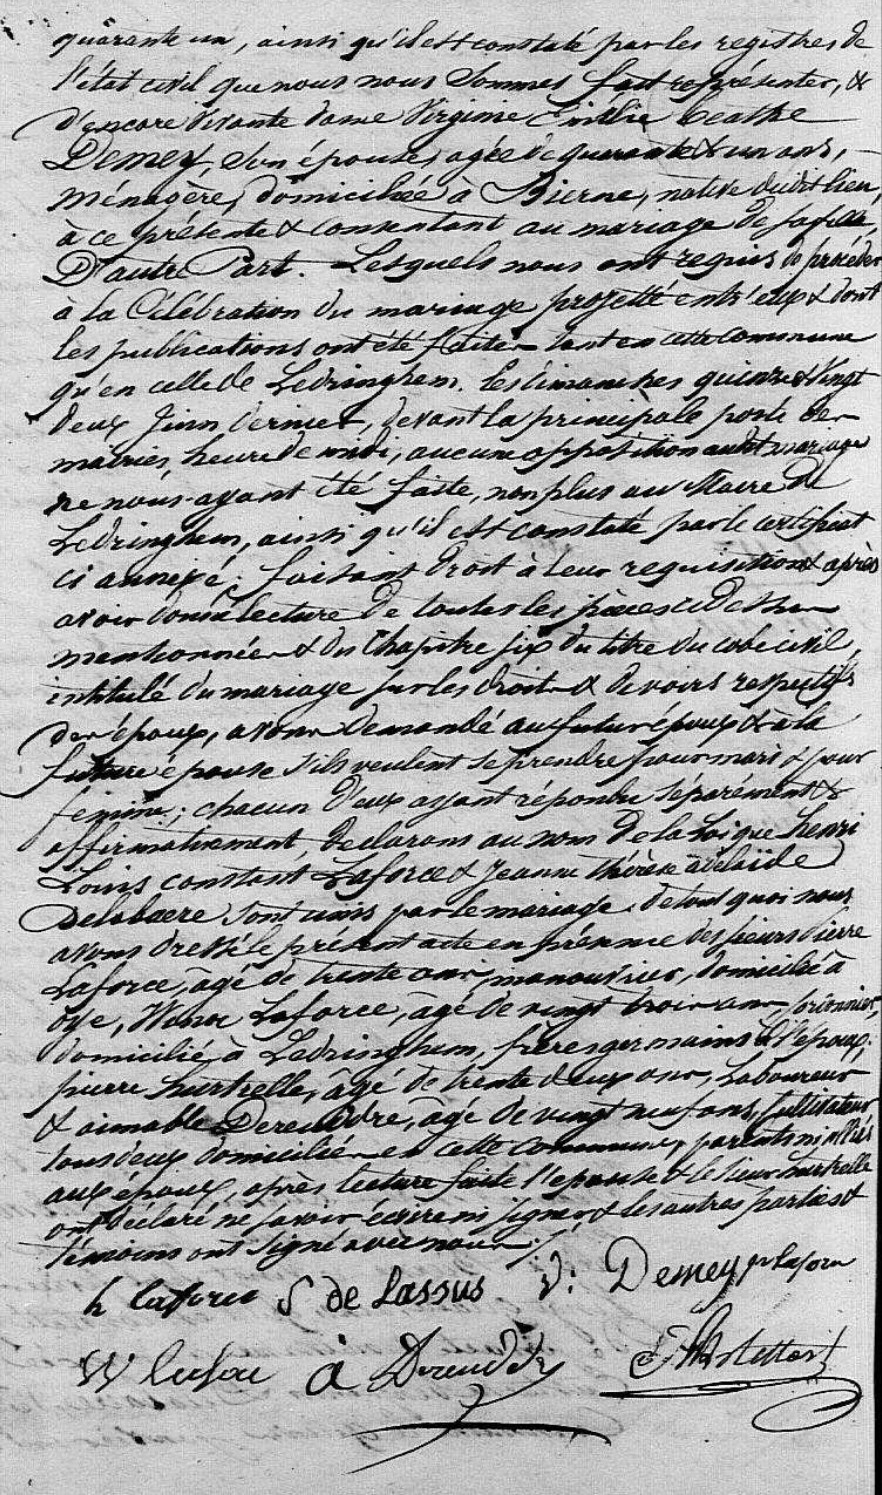 quarante un, ainsi qu'il est constaté par les registres de
l'état civil que nous nous sommes fait représenter, &
d'encore vivante dame Virginie Emélie
Demey, son épouse, agée de quarante & un ans,
ménagère, domiciliée à Bierne, native dudit lieu,
à ce présente & consentant au mariage de sa fille,
D'autre Part. Lesquels nous ont requis de procéder
à la Célébration du mariage projetté entr'eux & dont
les publications ont été faites tant en cette commune
qu'en celle de Ledringhem. les dimanches quinze & vingt
deux Juin dernier, devant la principale porte des
mairies, heure de midi, aucune opposition audit mariage
ne nous ayant été faite, non plus au Maire de
Ledringhem, ainsi qu'il est constaté par le certificat
ci annexé; faisant droit à leur requisition & après
avoir donné lecture de toutes les pièces ci dessus
mentionnées & du Chapitre six du titre du code civil,
intitulé du mariage sur les droits & devoirs respectifs
des époux, avons demandé au futur époux & à la
future épouse s'ils veulent se prendre pour mari & pour
femme; chacun d'eux ayant répondu séparément &
affirmativement, declarons au nom de la Loi que henri
Louis constant Laforce & Jeanne thérèse adelaïde
Delabaere sont unis par le mariage. de tout quoi nous
avons dressé le présent acte en présence des sieurs Pierre
Laforce, âgé de trente ans, manouvrier, domicilié à
oye, Laforce, âgé de vingt trois ans,
domicilié à Ledringhem, frères germains de l'époux;
pierre hurtrelle, âgé de trente deux ans, Laboureur
& aimable Dereudre, âgé de vingt neuf ans, Cultivateur
tous deux domiciliés en cette commune, parents ni alliés
aux époux, après lecture faite l'épouse & le sieur hurtrelle
ont déclaré ne savoir écrire ni signer & les autres parties &
témoins ont signé avec nous
h laforce S de Lassus V: Demey pr laforce
W laforce à Dereudre